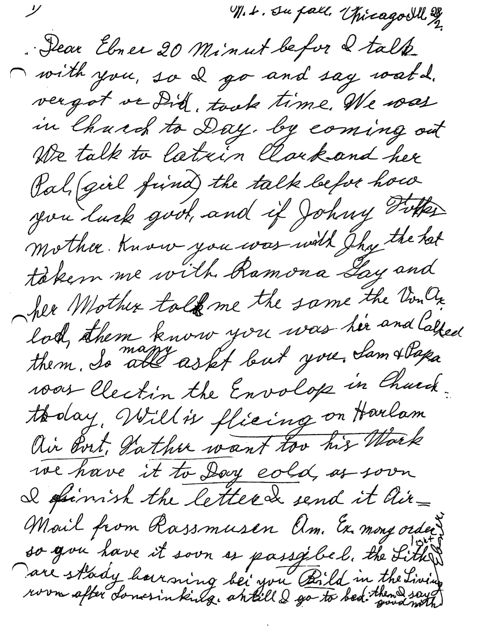 Chicago Ill.
Dear Ebner 20 Minut befor I talk
with you, so I go and say wat I.
vergot or Did. took time. We was
in Church to Day. by coming out
We talk to Clark and her
Pal, (girl frind) the talk befor how
you luck goot, and if Johny
mother. Know you was with Jhy the hat
takem me with Ramona Gay and
her Mother told me the same the Von
lot, them know you was hir and Called
them. So many askt but you, Sam & Papa
was Clectin the Envolop in Church
today. Will is flieing on Harlam
Air Port, Father want too his Work
we have it to Day cold, as soon
I finish the letter I send it Air=
Mail from Rassmusen Am. Ex. mony order
so you have it soon is passgibel. the Lith
are stady burning bei you Bild in the Living
room after I go to bed. them I say
good nith
Ebner.